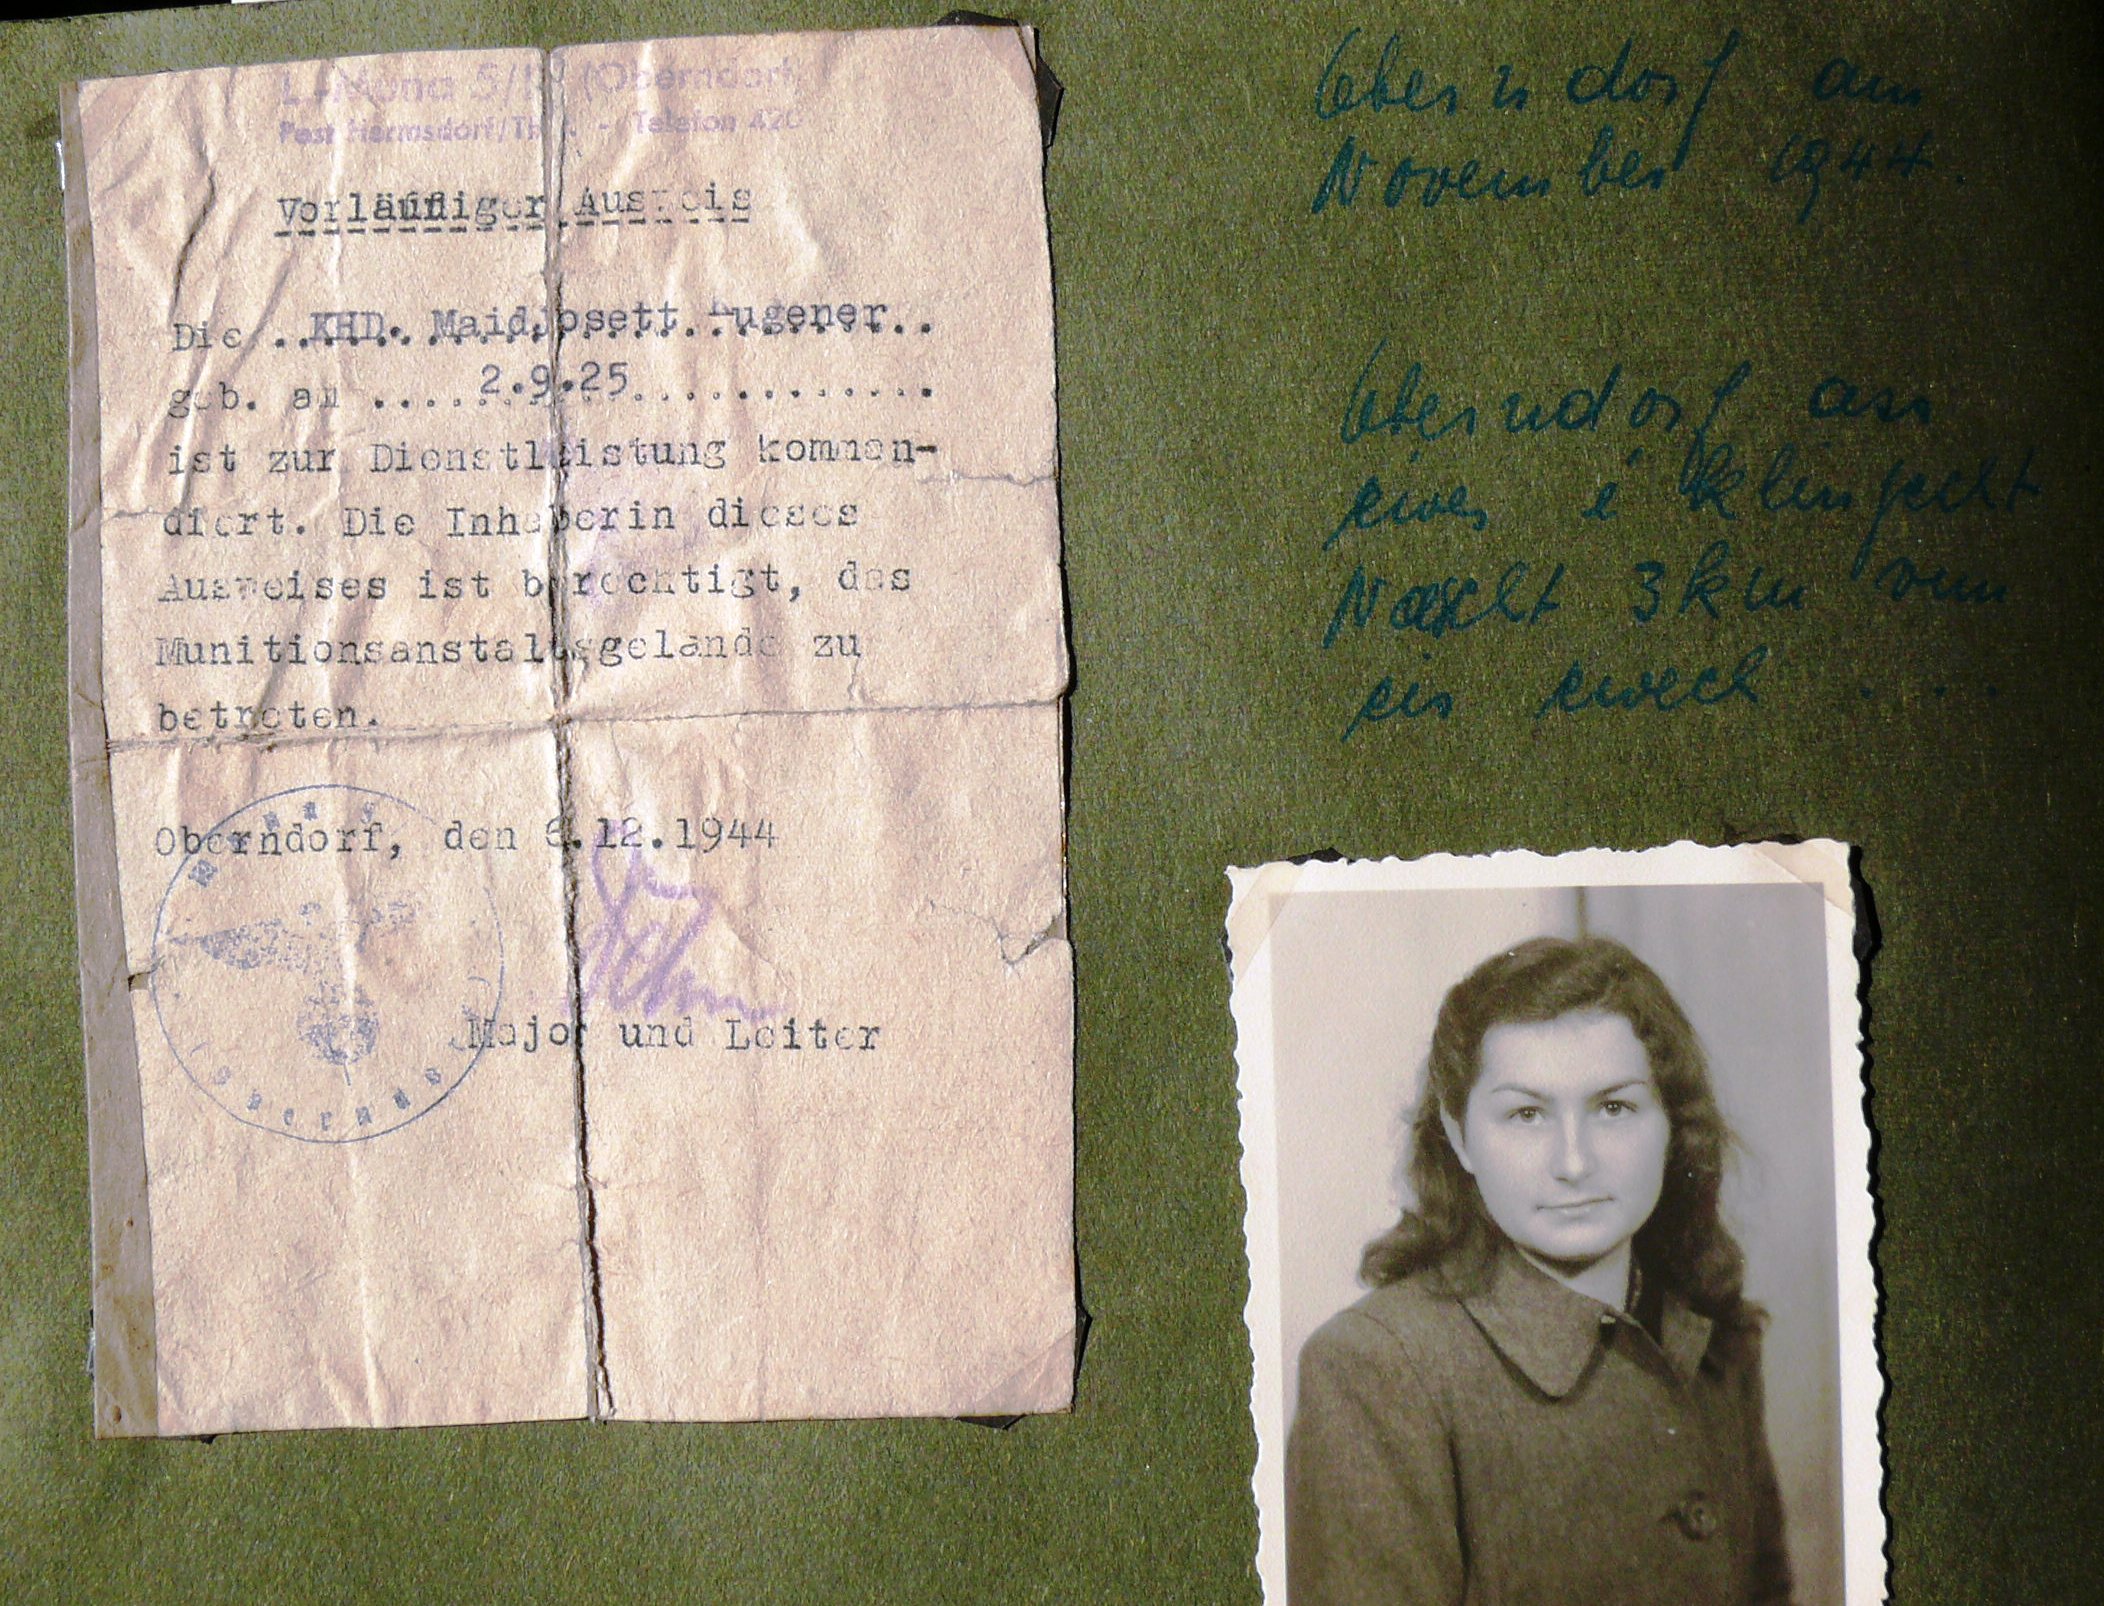 L.-Muna 5/IV (Oberndorf)
Post Hermsdorf/Th. - Telefon 420
Vorläufiger Ausweis
Die ..KHD. Maid Josett. Eugener..
geb. am ....2.9.25............
ist zur Dienstleistung komman-
diert. Die Inhaberin dieses
Ausweises ist berechtigt, das
Munitionsanstaltsgelände zu
betreten.
Oberndorf, den 6.12.1944
Major und Leiter
Oberndorf am
November 1944.
Oberndorf ass
eiwer e
Naascht 3 km vun
eis ewech ...